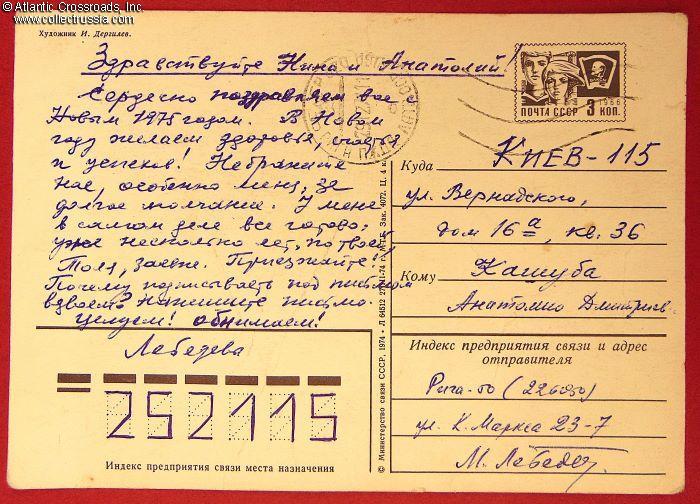 © Atlantic Crossroads, Inc.
www.collectrussia.com
Художник И. Дергилев.
Здравствуйте Нина и Анатолий!
Сердечно поздравляем вас с
Новым 1975 годом. В Новом
году желаем здоровья, счастья
и успехов! Не браните
нас, особенно меня, за
долгое молчание. У меня
в самом деле все готово:
уже несколько лет, по твоей,
Толя, Приезжайте!
Почему подписывать под письмом
вдвоем? Напишите письмо.
Целуем! Обнимаем!
Лебедева
252115
Индекс предприятия связи места назначения
© Министерство связи СССР, 1974 • Зак. 4072. Ц. 4 к.
ПОЧТА СССР 3 КОП.
1966
Куда КИЕВ-115
ул. Вернадского,
дом 16а, кв. 36
Кому Кашуба
Анатолию Дмитриев.
Индекс предприятия связи и адрес
отправителя
Рига-50 (226050)
ул. К. Маркса 23-7
М. Лебедев